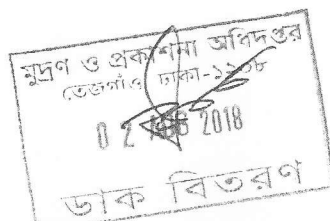 মুদ্রণ ও প্রকাশনা অধিদপ্তর
তেজগাঁও ঢাকা-১২০৮
0 2 2018
ডাক বিতরণ